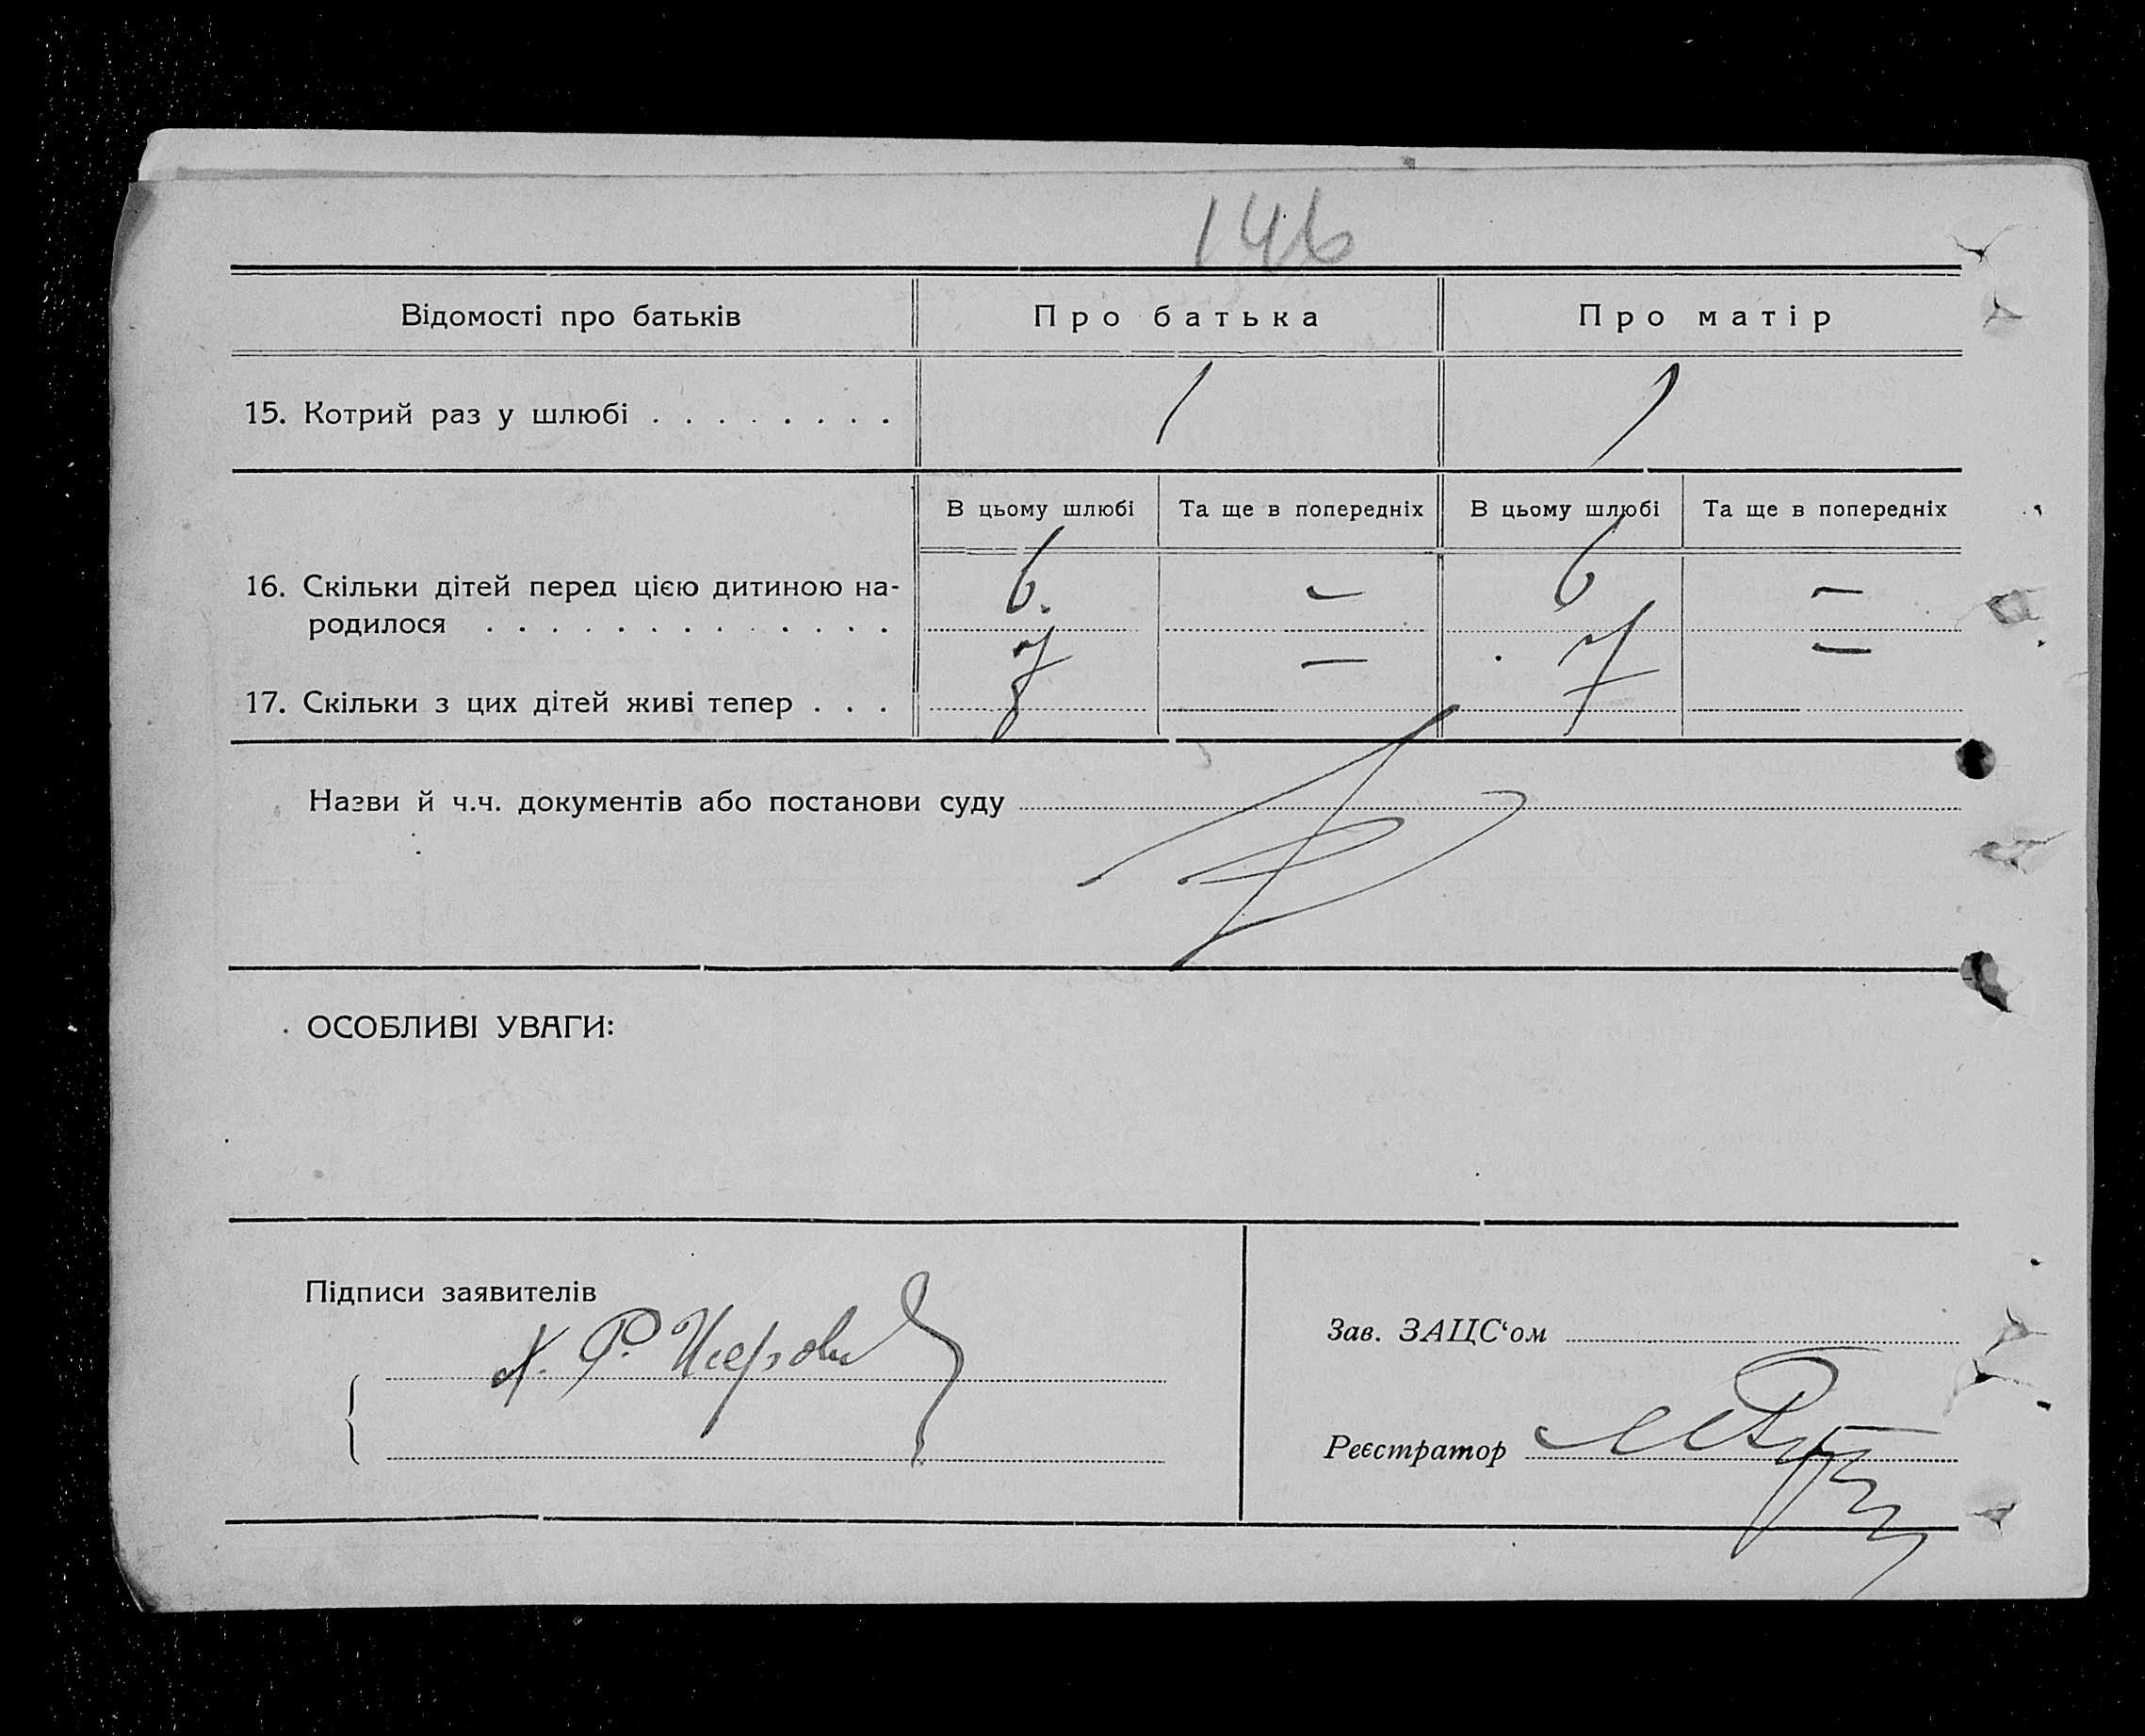 146
Відомості про батьків Про батька Про матір
15. Котрий раз у шлюбі . . . . . . . . 1 1
В цьому шлюбі Та ще в попередніх В цьому шлюбі Та ще в попередніх
16. Скільки дітей перед цією дитиною на- 6. — 6 —
родилося . . . . . . . . . . . . . .
17. Скільки з цих дітей живі тепер . . . 7 — 7 —
Назви й ч.ч. документів або постанови суду
ОСОБЛИВІ УВАГИ:
Підписи заявителів
Зав. ЗАЦС‘ом
Реєстратор